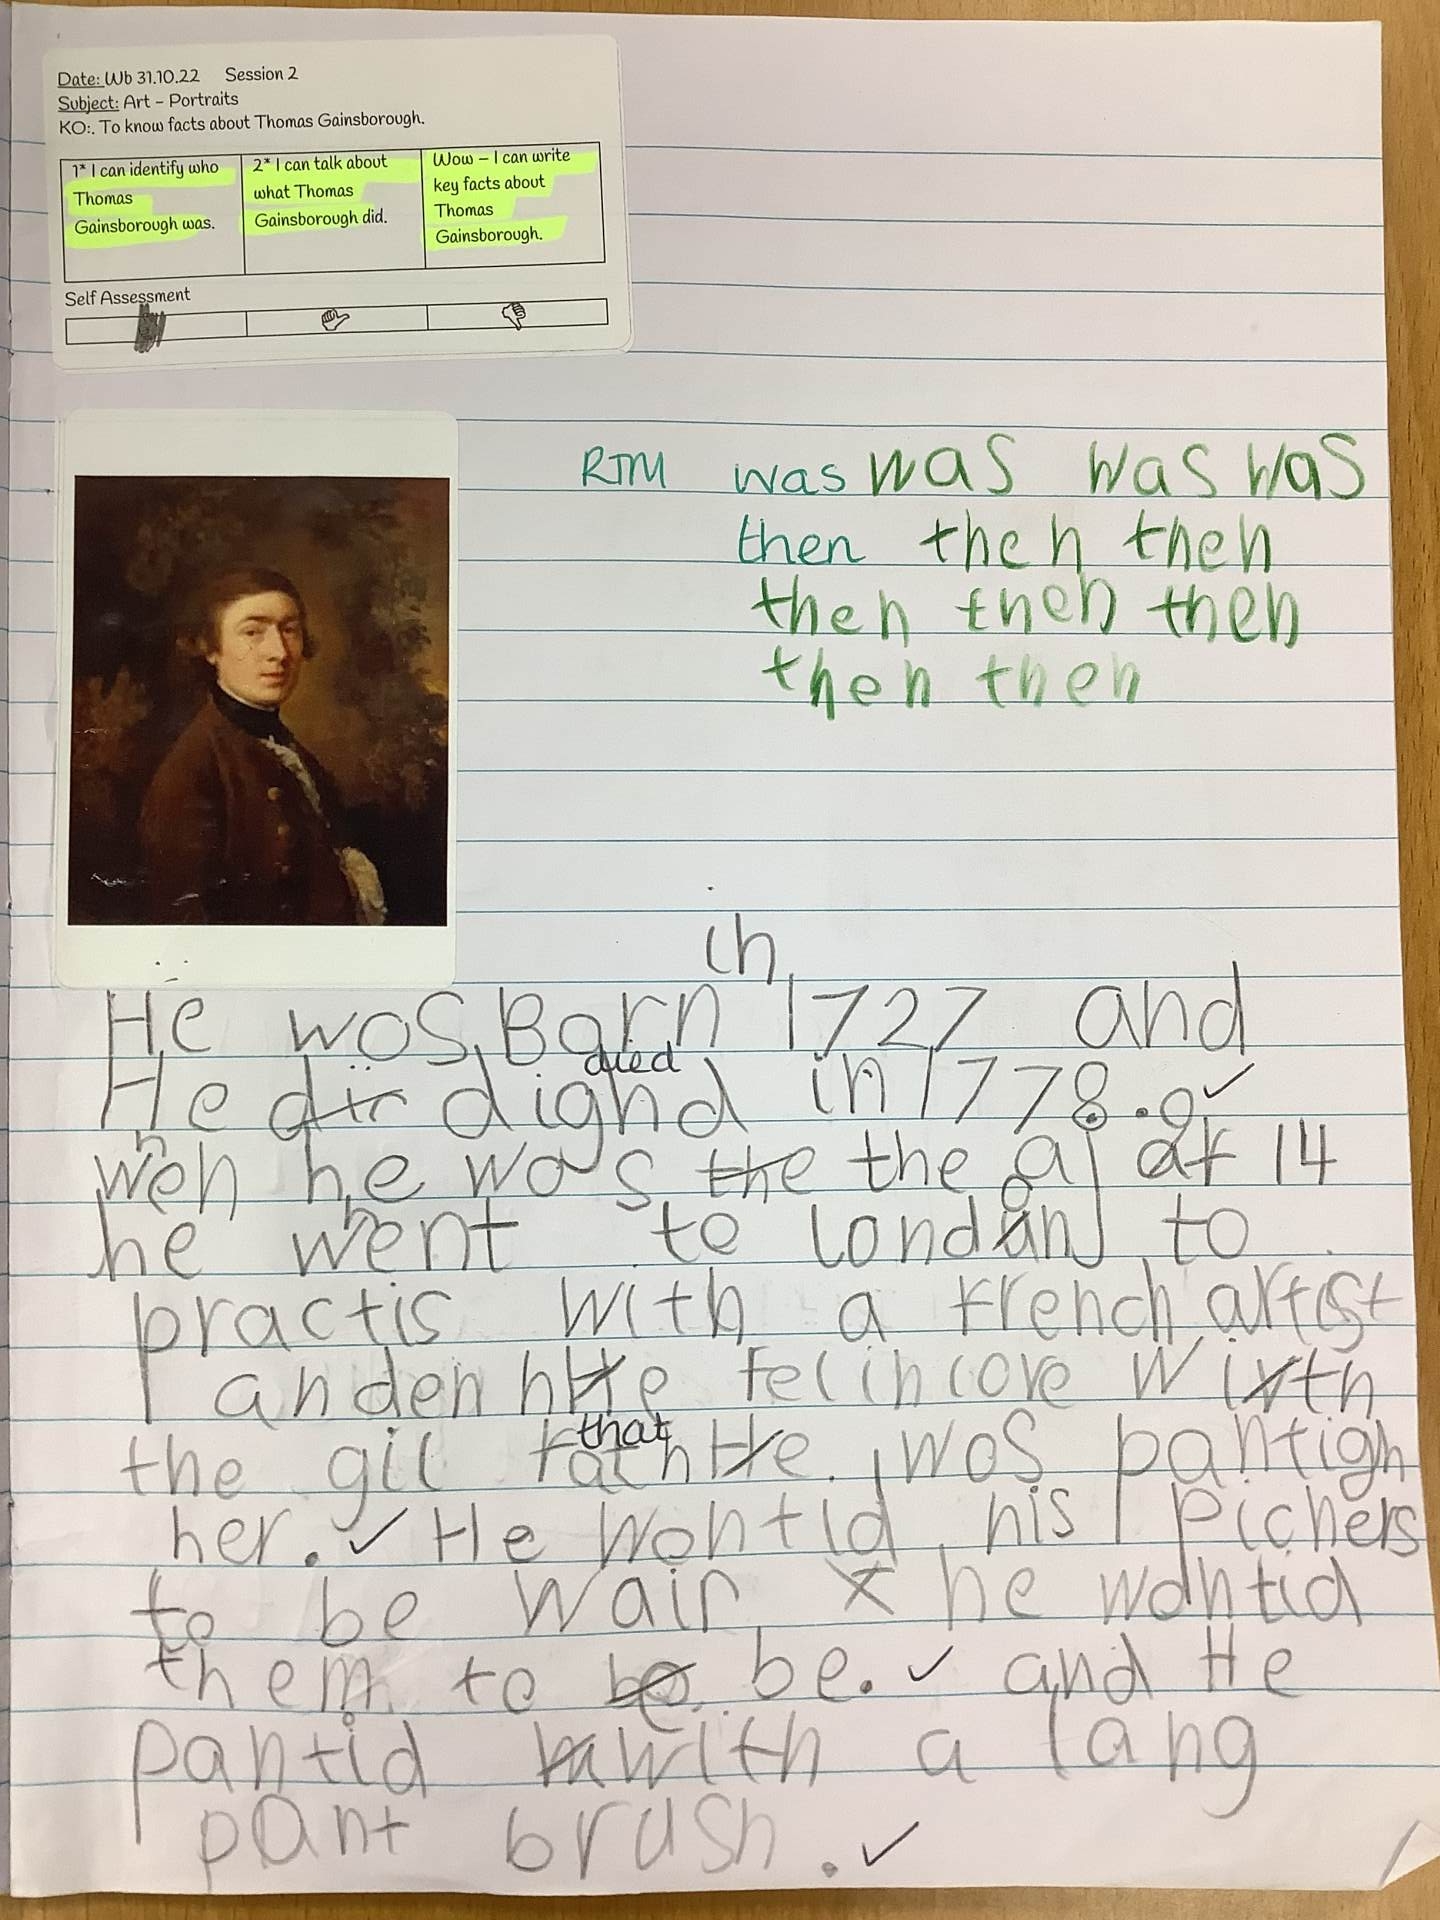 Date: Wb 31.10.22 Session 2
Subject: Art – Portraits
KO:. To know facts about Thomas Gainsborough.
1* I can identify who
Thomas
Gainsborough was.
2* I can talk about
what Thomas
Gainsborough did.
Wow – I can write
key facts about
Thomas
Gainsborough.
Self Assessment
RTM was was was was
then then then
then then then
then then
in
He wos Barn 1727 and
died
He dignd in 1778. ✓
weh he wos the the aj at 14
he went to london to
practis with a french artist
anden he fel in love with
that
the gil tath He wos pantigh
her. ✓ He wontid his pichers
to be wair he wontid
them to be be. ✓ and He
pantid with a lang
pant brush. ✓